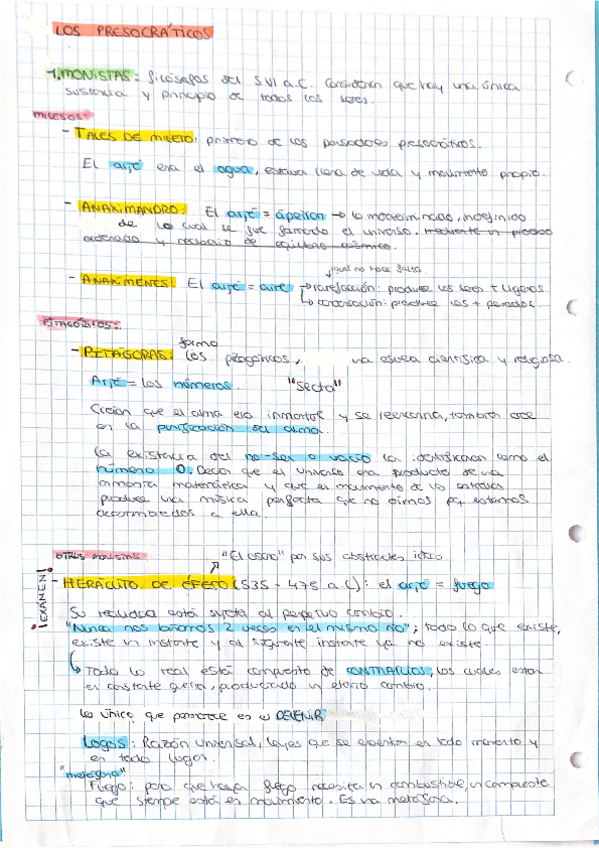 LOS PRESOCRÁTICOS
-1.MONISTAS: filósofos del SVI a.C. Consideran que hay una única
sustancia y principio de todos los seres.
MILESOS:
- TALES DE MILETO: primero de los pensadores presocráticos.
El arjé era el agua, estaba llena de vida y movimiento propio.
- ANAXIMANDRO: El arjé = ápeiron → lo indeterminado, indefinido
de lo cual se fue formando el universo. mediante un proceso
ordenado y necesario de equilibrio cósmico.
igual no hace falta
- ANAXÍMENES: El arjé = aire → rarefacción: produce los seres + ligeros
↳ condensación: produce los + pesados
PITAGÓRICOS:
forma
- PITÁGORAS: los pitagóricos, una escuela científica y religiosa.
Arjé = los números. "secta"
Creían que el alma era inmortal y se reencarna, también cree
en la purificación del alma.
La existencia del no-ser o vacío la identificaron como el
número 0. Decían que el universo era producto de una
armonía matemática y que el movimiento de los astros
produce una música perfecta que no oímos pq estamos
acostumbrados a ella.
OTROS MONISTAS "El oscuro" por sus abstractas ideas
¡EXAMEN!
- HERÁCLITO DE ÉFESO (535 - 475 a C): el arjé = fuego
Su realidad está sujeta al perpetuo cambio.
"Nunca nos bañamos 2 veces en el mismo río"; todo lo que existe,
existe un instante y al siguiente instante ya no existe.
↳ Todo lo real está compuesto de CONTRARIOS, los cuales están
en constante guerra, produciendo un eterno cambio.
Lo único que permanece es el DEVENIR
Logos: Razón universal, leyes que se en todo momento y
en todo lugar.
"metáfora"
Fuego: para que haya fuego necesita un combustible, un componente
que siempre está en movimiento. Es una metáfora.